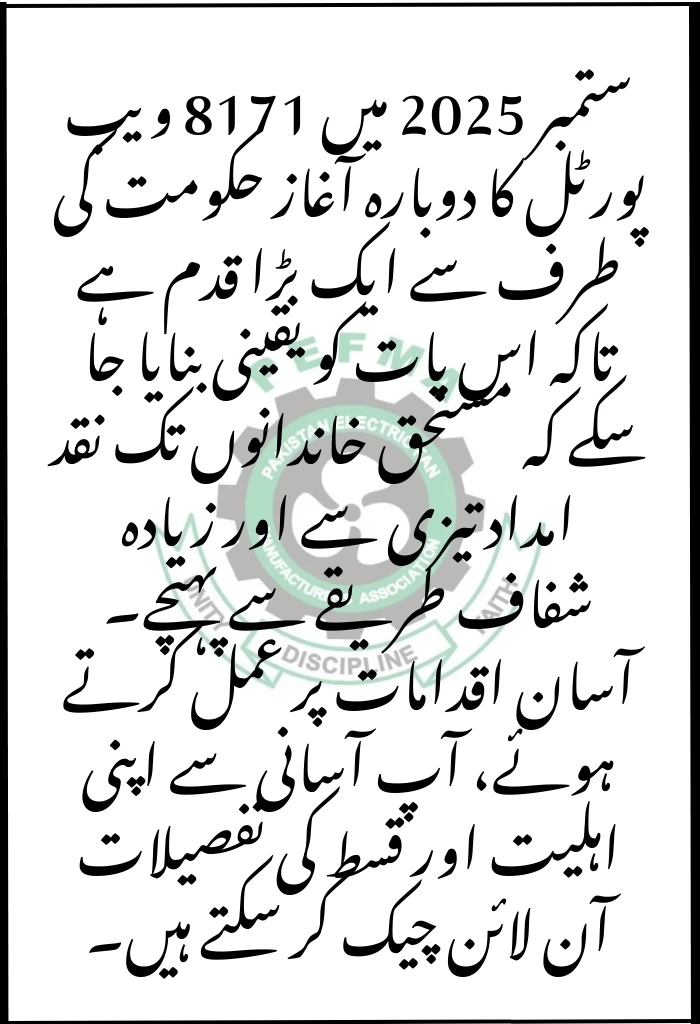 ستمبر 2025 میں 8171 ویب
پورٹل کا دوبارہ آغاز حکومت کی
طرف سے ایک بڑا قدم ہے
تاکہ اس بات کو یقینی بنایا جا
سکے کہ مستحق خاندانوں تک نقد
امداد تیزی سے اور زیادہ
شفاف طریقے سے پہنچے۔
آسان اقدامات پر عمل کرتے
ہوئے، آپ آسانی سے اپنی
اہلیت اور قسط کی تفصیلات
آن لائن چیک کر سکتے ہیں۔
PEFMA
PAKISTAN ELECTRIC FAN
MANUFACTURERS ASSOCIATION
UNITY
DISCIPLINE
FAITH